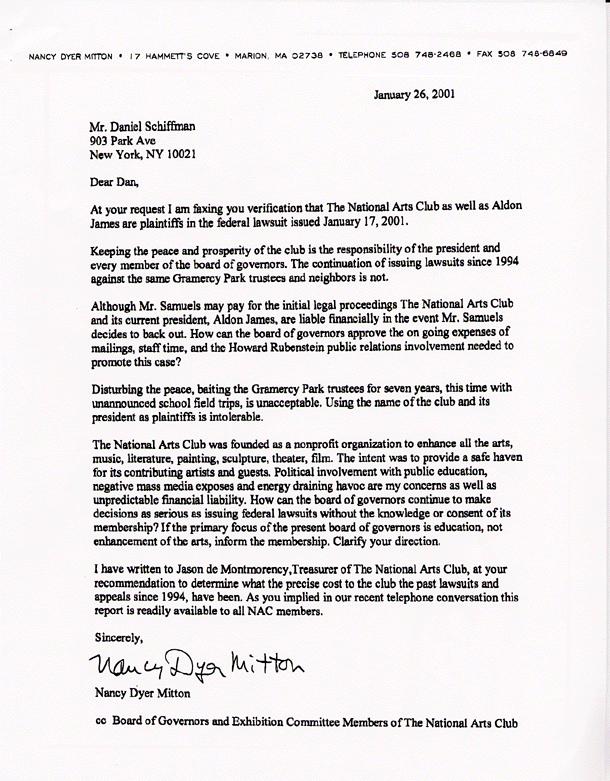 NANCY DYER MITTON * 17 HAMMETT'S COVE * MARION, MA 02738 * TELEPHONE 508 748-2468 * FAX 508 748-6849
January 26, 2001
Mr. Daniel Schiffman
903 Park Ave
New York, NY 10021
Dear Dan,
At your request I am faxing you verification that The National Arts Club as well as Aldon
James are plaintiffs in the federal lawsuit issued January 17, 2001.
Keeping the peace and prosperity of the club is the responsibility of the president and
every member of the board of governors. The continuation of issuing lawsuits since 1994
against the same Gramercy Park trustees and neighbors is not.
Although Mr. Samuels may pay for the initial legal proceedings The National Arts Club
and its current president, Aldon James, are liable financially in the event Mr. Samuels
decides to back out. How can the board of governors approve the on going expenses of
mailings, staff time, and the Howard Rubenstein public relations involvement needed to
promote this case?
Disturbing the peace, baiting the Gramercy Park trustees for seven years, this time with
unannounced school field trips, is unacceptable. Using the name of the club and its
president as plaintiffs is intolerable.
The National Arts Club was founded as a nonprofit organization to enhance all the arts,
music, literature, painting, sculpture, theater, film. The intent was to provide a safe haven
for its contributing artists and guests. Political involvement with public education,
negative mass media exposes and energy draining havoc are my concerns as well as
unpredictable financial liability. How can the board of governors continue to make
decisions as serious as issuing federal lawsuits without the knowledge or consent of its
membership? If the primary focus of the present board of governors is education, not
enhancement of the arts, inform the membership. Clarify your direction.
I have written to Jason de Montmorency,Treasurer of The National Arts Club, at your
recommendation to determine what the precise cost to the club the past lawsuits and
appeals since 1994, have been. As you implied in our recent telephone conversation this
report is readily available to all NAC members.
Sincerely,
Nancy Dyer Mitton
Nancy Dyer Mitton
cc Board of Governors and Exhibition Committee Members of The National Arts Club